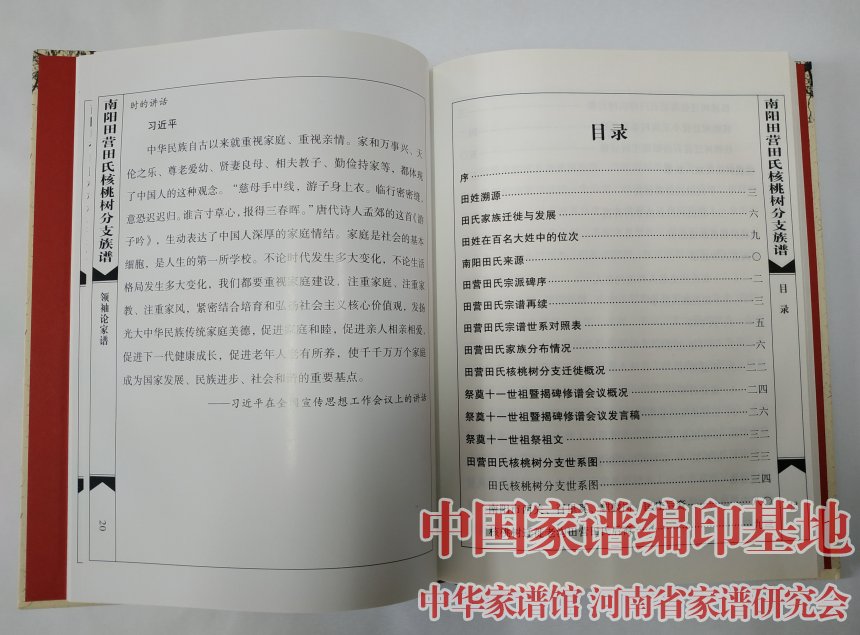 南阳田营田氏核桃树分支族谱
领袖论家谱
20
时的讲话
习近平
中华民族自古以来就重视家庭、重视亲情。家和万事兴、天
伦之乐、尊老爱幼、贤妻良母、相夫教子、勤俭持家等，都体现
了中国人的这种观念。“慈母手中线，游子身上衣。临行密密缝，
意恐迟迟归。谁言寸草心，报得三春晖。”唐代诗人孟郊的这首《游
子吟》，生动表达了中国人深厚的家庭情结。家庭是社会的基本
细胞，是人生的第一所学校。不论时代发生多大变化，不论生活
格局发生多大变化，我们都要重视家庭建设，注重家庭、注重家
教、注重家风，紧密结合培育和弘扬社会主义核心价值观，发扬
光大中华民族传统家庭美德，促进家庭和睦，促进亲人相亲相爱，
促进下一代健康成长，促进老年人老有所养，使千千万万个家庭
成为国家发展、民族进步、社会和谐的重要基点。
——习近平在全国宣传思想工作会议上的讲话
目录
序……一
田姓溯源……三
田氏家族迁徙与发展……六
田姓在百名大姓中的位次……九
南阳田氏来源……〇
田营田氏宗派碑序……二
田营田氏宗谱再续……三
田营田氏宗谱世系对照表……五
田营田氏家族分布情况……六
田营田氏核桃树分支迁徙概况……二二
祭奠十一世祖暨揭碑修谱会议概况……二四
祭奠十一世祖暨揭碑修谱会议发言稿……二六
祭奠十一世祖祭祖文……三二
田营田氏核桃树分支世系图……三三
田氏核桃树分支世系图……三四
南阳田营田氏核桃树分支族谱
目录
中国家谱编印基地
中华家谱馆 河南省家谱研究会